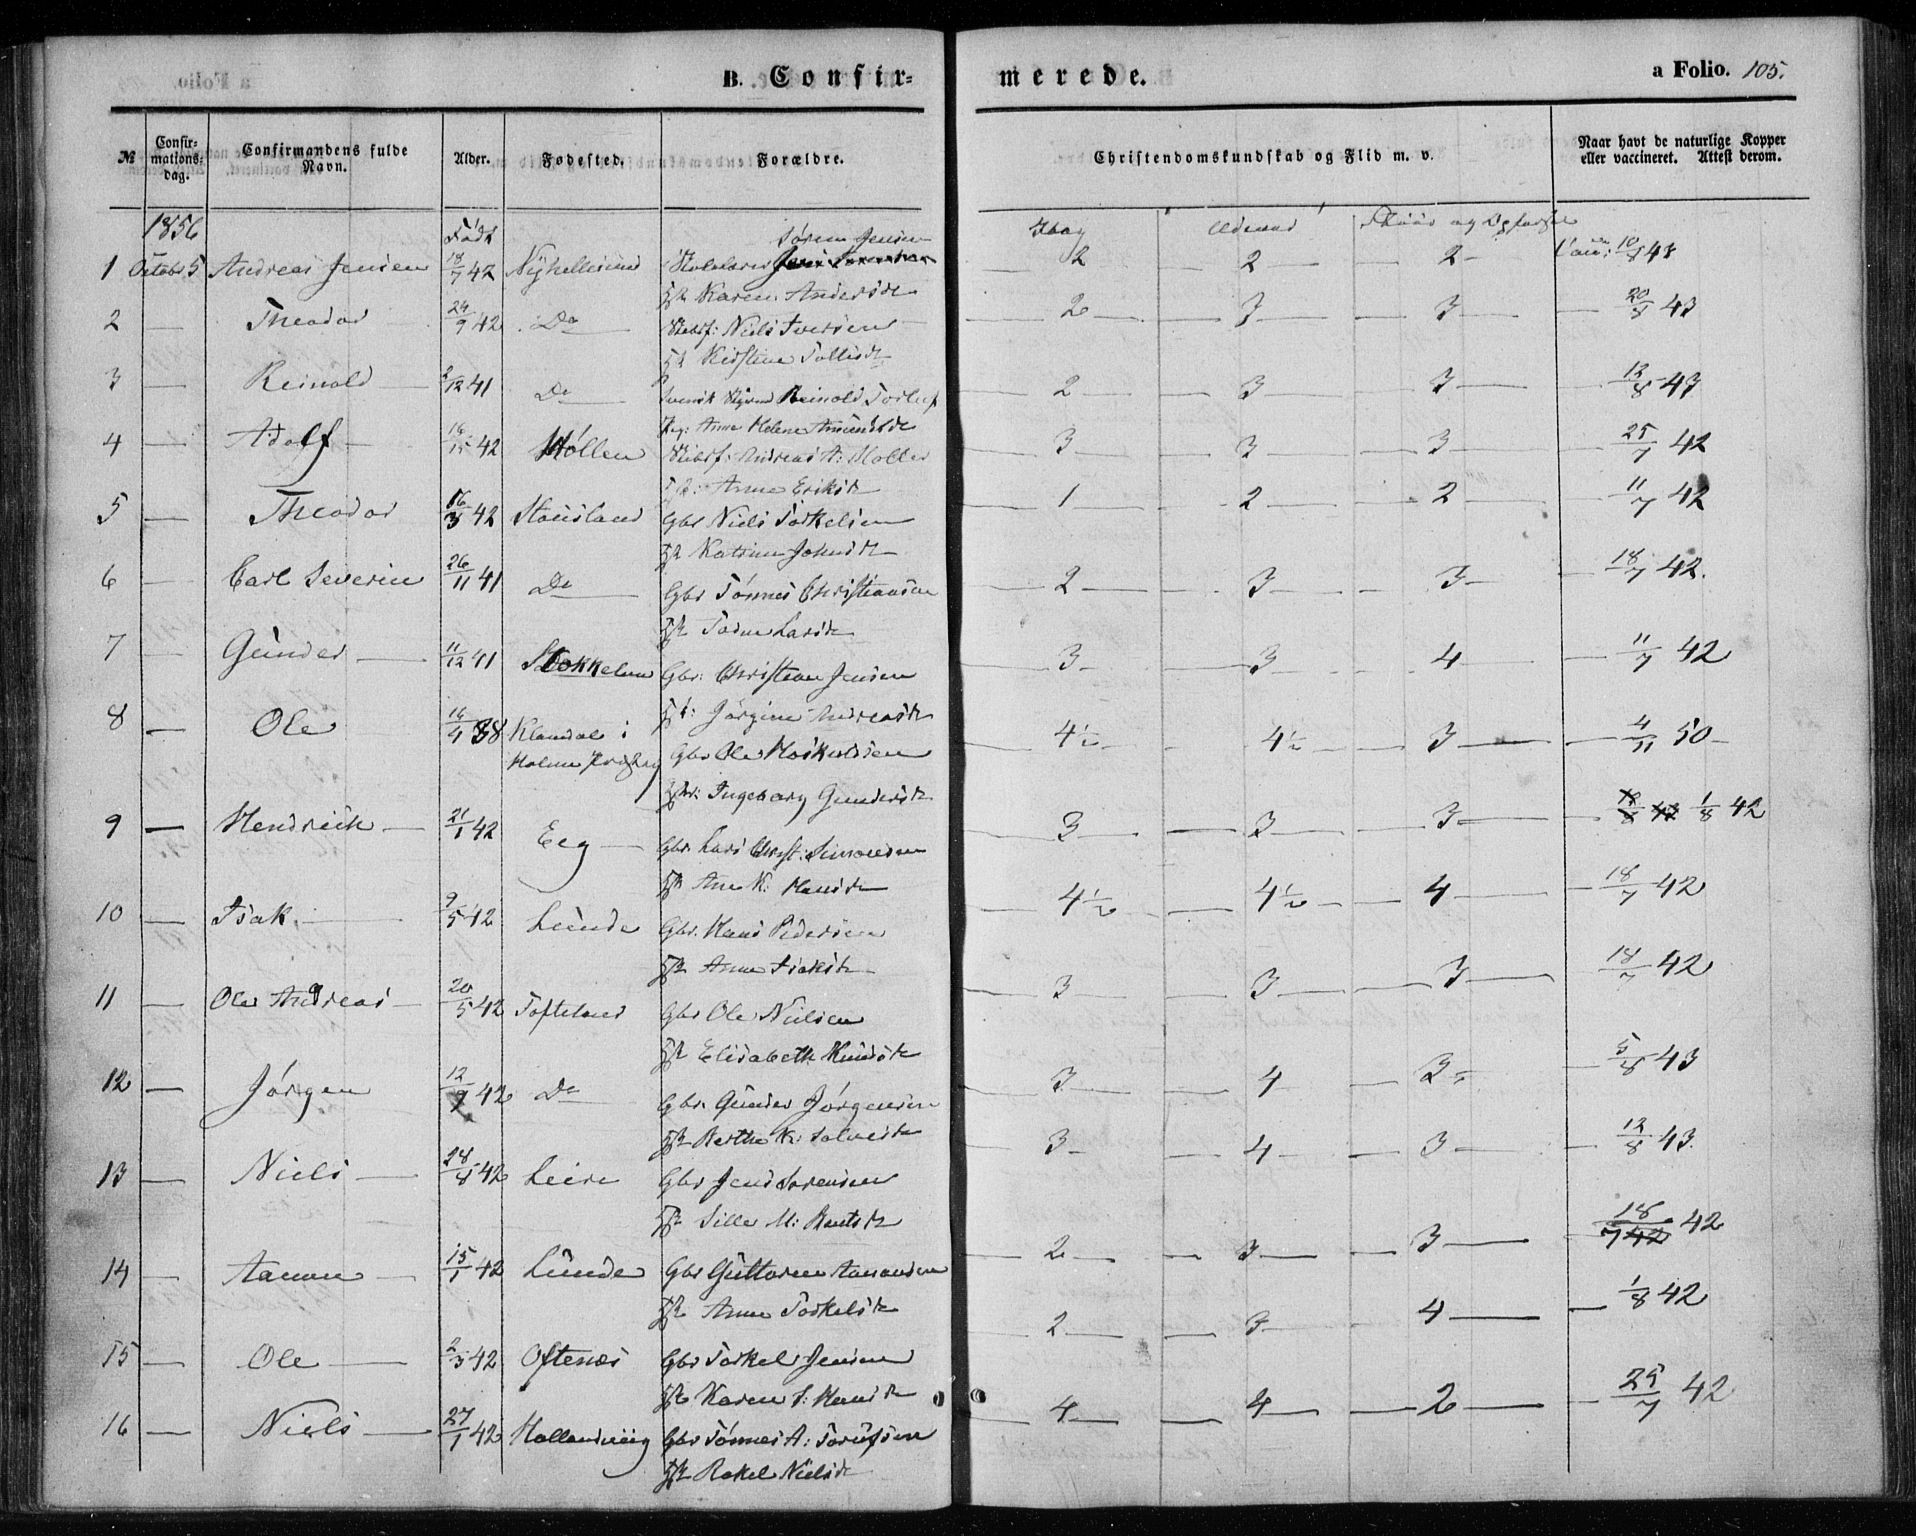 B. Confir-
merede.
a Folio. 105.
№
Confir-mations-dag.
Confirmandens fulde Navn.
Alder.
Fødested.
Forældre.
Christendomskundskab og Flid m. v.
Naar havt de naturlige Kopper eller vaccineret. Attest derom.
1856 Født Søren Jensen
1 Octobr 5 Andreas Jensen 18/7 42 Nyhellesund 2 2 2 10/8 43
Karen Andersd
2 — Theodor 24/9 42 Do Niels Iversen 2 3 3 20/8 43
Kirstine Tollisd
3 — Reinold 2/12 41 Do Svensk Reinold 2 3 3 12/8 43
Anne Helene Amundsd
4 — Adolf 42 Høllen Andreas A: Møller 3 3 3 25/7 42
Anne Eriksd
5 — Theodor 16/3 42 Stausland Gbr Niels Torkelsen 1 2 2 11/7 42
Katrine Johnsd
6 — Carl Severin 26/11 41 Do Gbr Tønnes Christiansen 2 3 3 18/7 42.
Larsd
7 — Gunder 11/12 41 Stokkelan Gbr: Christian Jensen 3 3 4 11/7 42
Jørgine Andreasd
8 — Ole 38 i Holme Gbr Ole Hoskuldsen 4½ 4½ 3 4/11 50
Ingebarg Gundersd
9 — Hendrich 21/1 42 Eeg Gbr. Lars Christ: Simonsen 3 3 3 1/8 42
Ane K: Hansd
10 — Isak 9/5 42 Lunde Gbr. Hans Pedersen 4½ 4½ 4 18/7 42
Anne Isaksd
11 — Ole Andreas 20/5 42 Tofteland Gbr Ole Nielsen 3 3 3 18/7 42
Elisabeth Knudsd
12 — Jørgen 12/9 42 Do Gbr. Gunder Jørgensen 3 4 3 5/8 43
Berthe K: Salvesd
13 — Niels 28/8 42 Leire Gbr Jens Sørensen 3 4 3 12/8 43.
Sille M: Bentsd
14 — Aanon 15/1 42 Lunde Gbr Guttorm Aanonsen 2 3 3 18/7 42
Anne Torkelsd
15 — Ole 2/3 42 Oftenæs Gbr Torkel Jensen 2 3 4 1/8 42
Karen S: Hansd
16 — Niels 27/1 42 Hallandsviig Gbr Tønnes A: 4 4 2 25/7 42
Rakel Nielsd